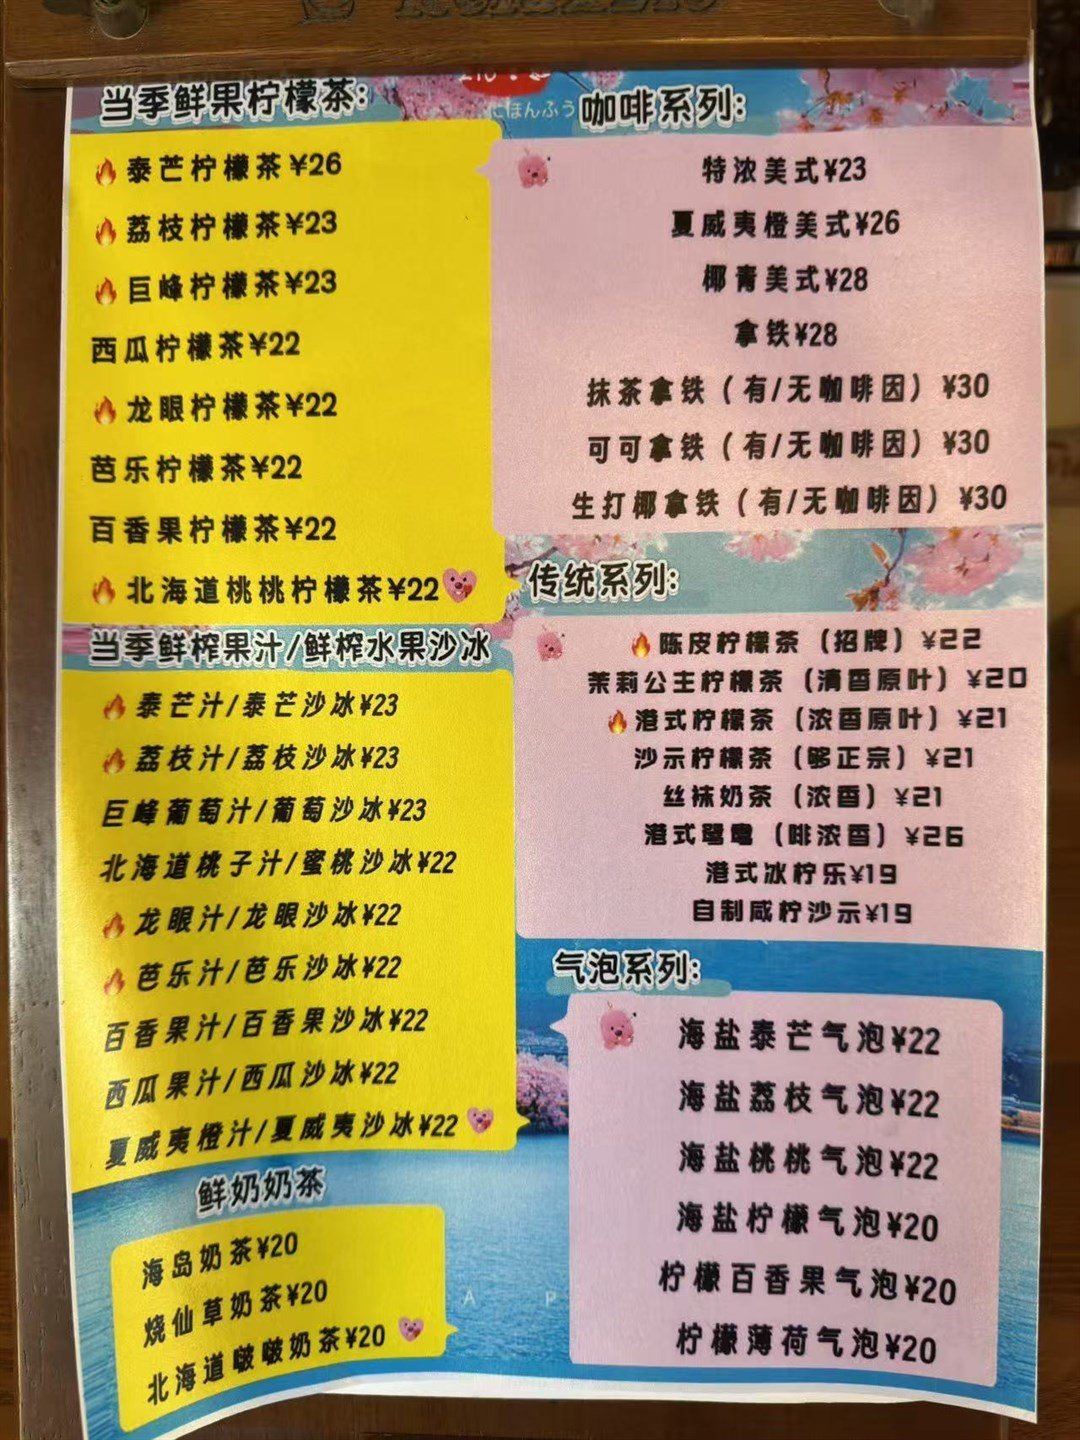 当季鲜果柠檬茶:
泰芒柠檬茶¥26
荔枝柠檬茶¥23
巨峰柠檬茶¥23
西瓜柠檬茶¥22
龙眼柠檬茶¥22
芭乐柠檬茶¥22
百香果柠檬茶¥22
北海道桃桃柠檬茶¥22
当季鲜榨果汁/鲜榨水果沙冰
泰芒汁/泰芒沙冰¥23
荔枝汁/荔枝沙冰¥23
巨峰葡萄汁/葡萄沙冰¥23
北海道桃子汁/蜜桃沙冰¥22
龙眼汁/龙眼沙冰¥22
芭乐汁/芭乐沙冰¥22
百香果汁/百香果沙冰¥22
西瓜果汁/西瓜沙冰¥22
夏威夷橙汁/夏威夷沙冰¥22
鲜奶奶茶
海岛奶茶¥20
烧仙草奶茶¥20
北海道啵啵奶茶¥20
にほんふう
咖啡系列:
特浓美式¥23
夏威夷橙美式¥26
椰青美式¥28
拿铁¥28
抹茶拿铁（有/无咖啡因）¥30
可可拿铁（有/无咖啡因）¥30
生打椰拿铁（有/无咖啡因）¥30
传统系列:
陈皮柠檬茶（招牌）¥22
茉莉公主柠檬茶（清香原叶）¥20
港式柠檬茶（浓香原叶）¥21
沙示柠檬茶（够正宗）¥21
丝袜奶茶（浓香）¥21
港式鸳鸯（啡浓香）¥26
港式冰柠乐¥19
自制咸柠沙示¥19
气泡系列:
海盐泰芒气泡¥22
海盐荔枝气泡¥22
海盐桃桃气泡¥22
海盐柠檬气泡¥20
柠檬百香果气泡¥20
柠檬薄荷气泡¥20
A P